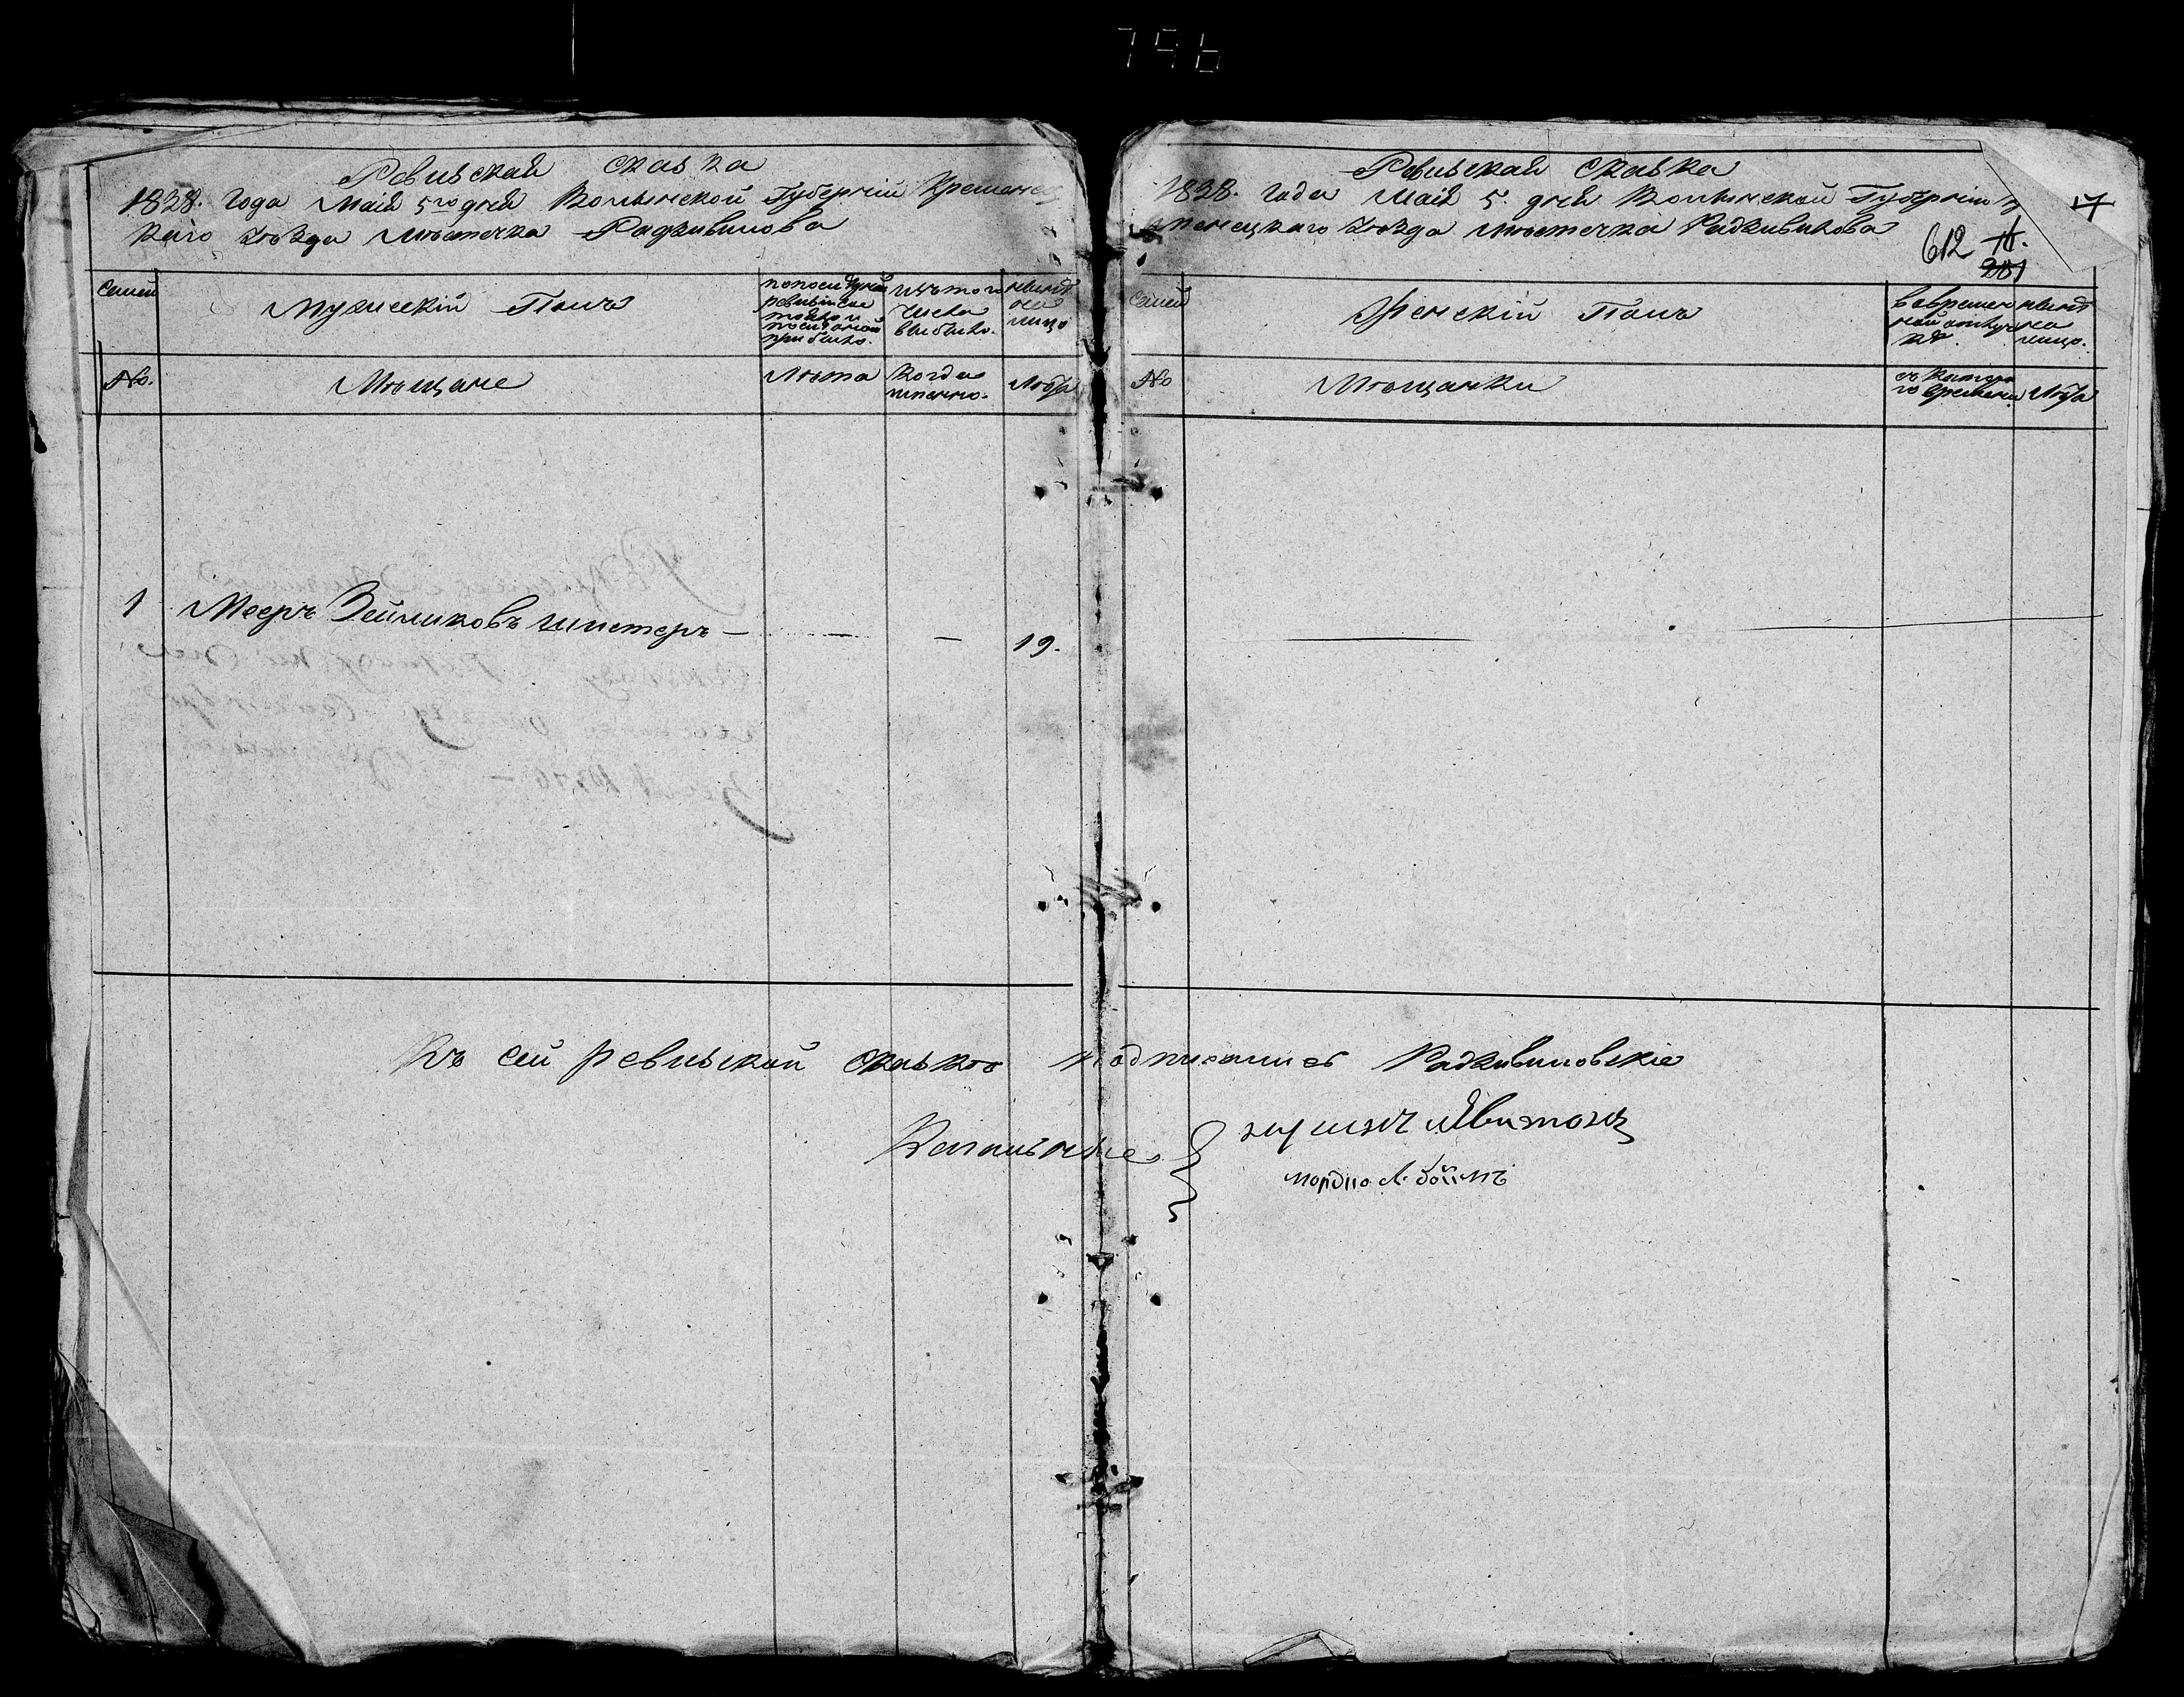 Ревизская сказка
1838. года Маія 5го дня Волынской Губерніи Кременец
каго уѣзда мѣстечка Радзивилова
Семьи
Мужескій Полъ
по последней
ревизіи
и после оной
прибыло.
изъ того
числа
выбыло.
нынѣ
на
лицо
No.
Мѣщане
Лѣта
Когда
имянно.
Лѣта
1 Мееръ Зейликовъ Шпетеръ — — — 19.
Ревизская Сказка
1838. года Маія 5. дня Волынской Губерніи
менецкаго уѣзда мѣстечка Радзивилова
17
612
11.
201
Семьи
Женскій Полъ
во времен
ной отлуч
кѣ.
нынѣ
на
лицо.
No
Мѣщанки
съ котора
го времени
Лѣта
Къ сей ревизской сказкѣ подписались Радзивиловскіе
Кагальные
мордко